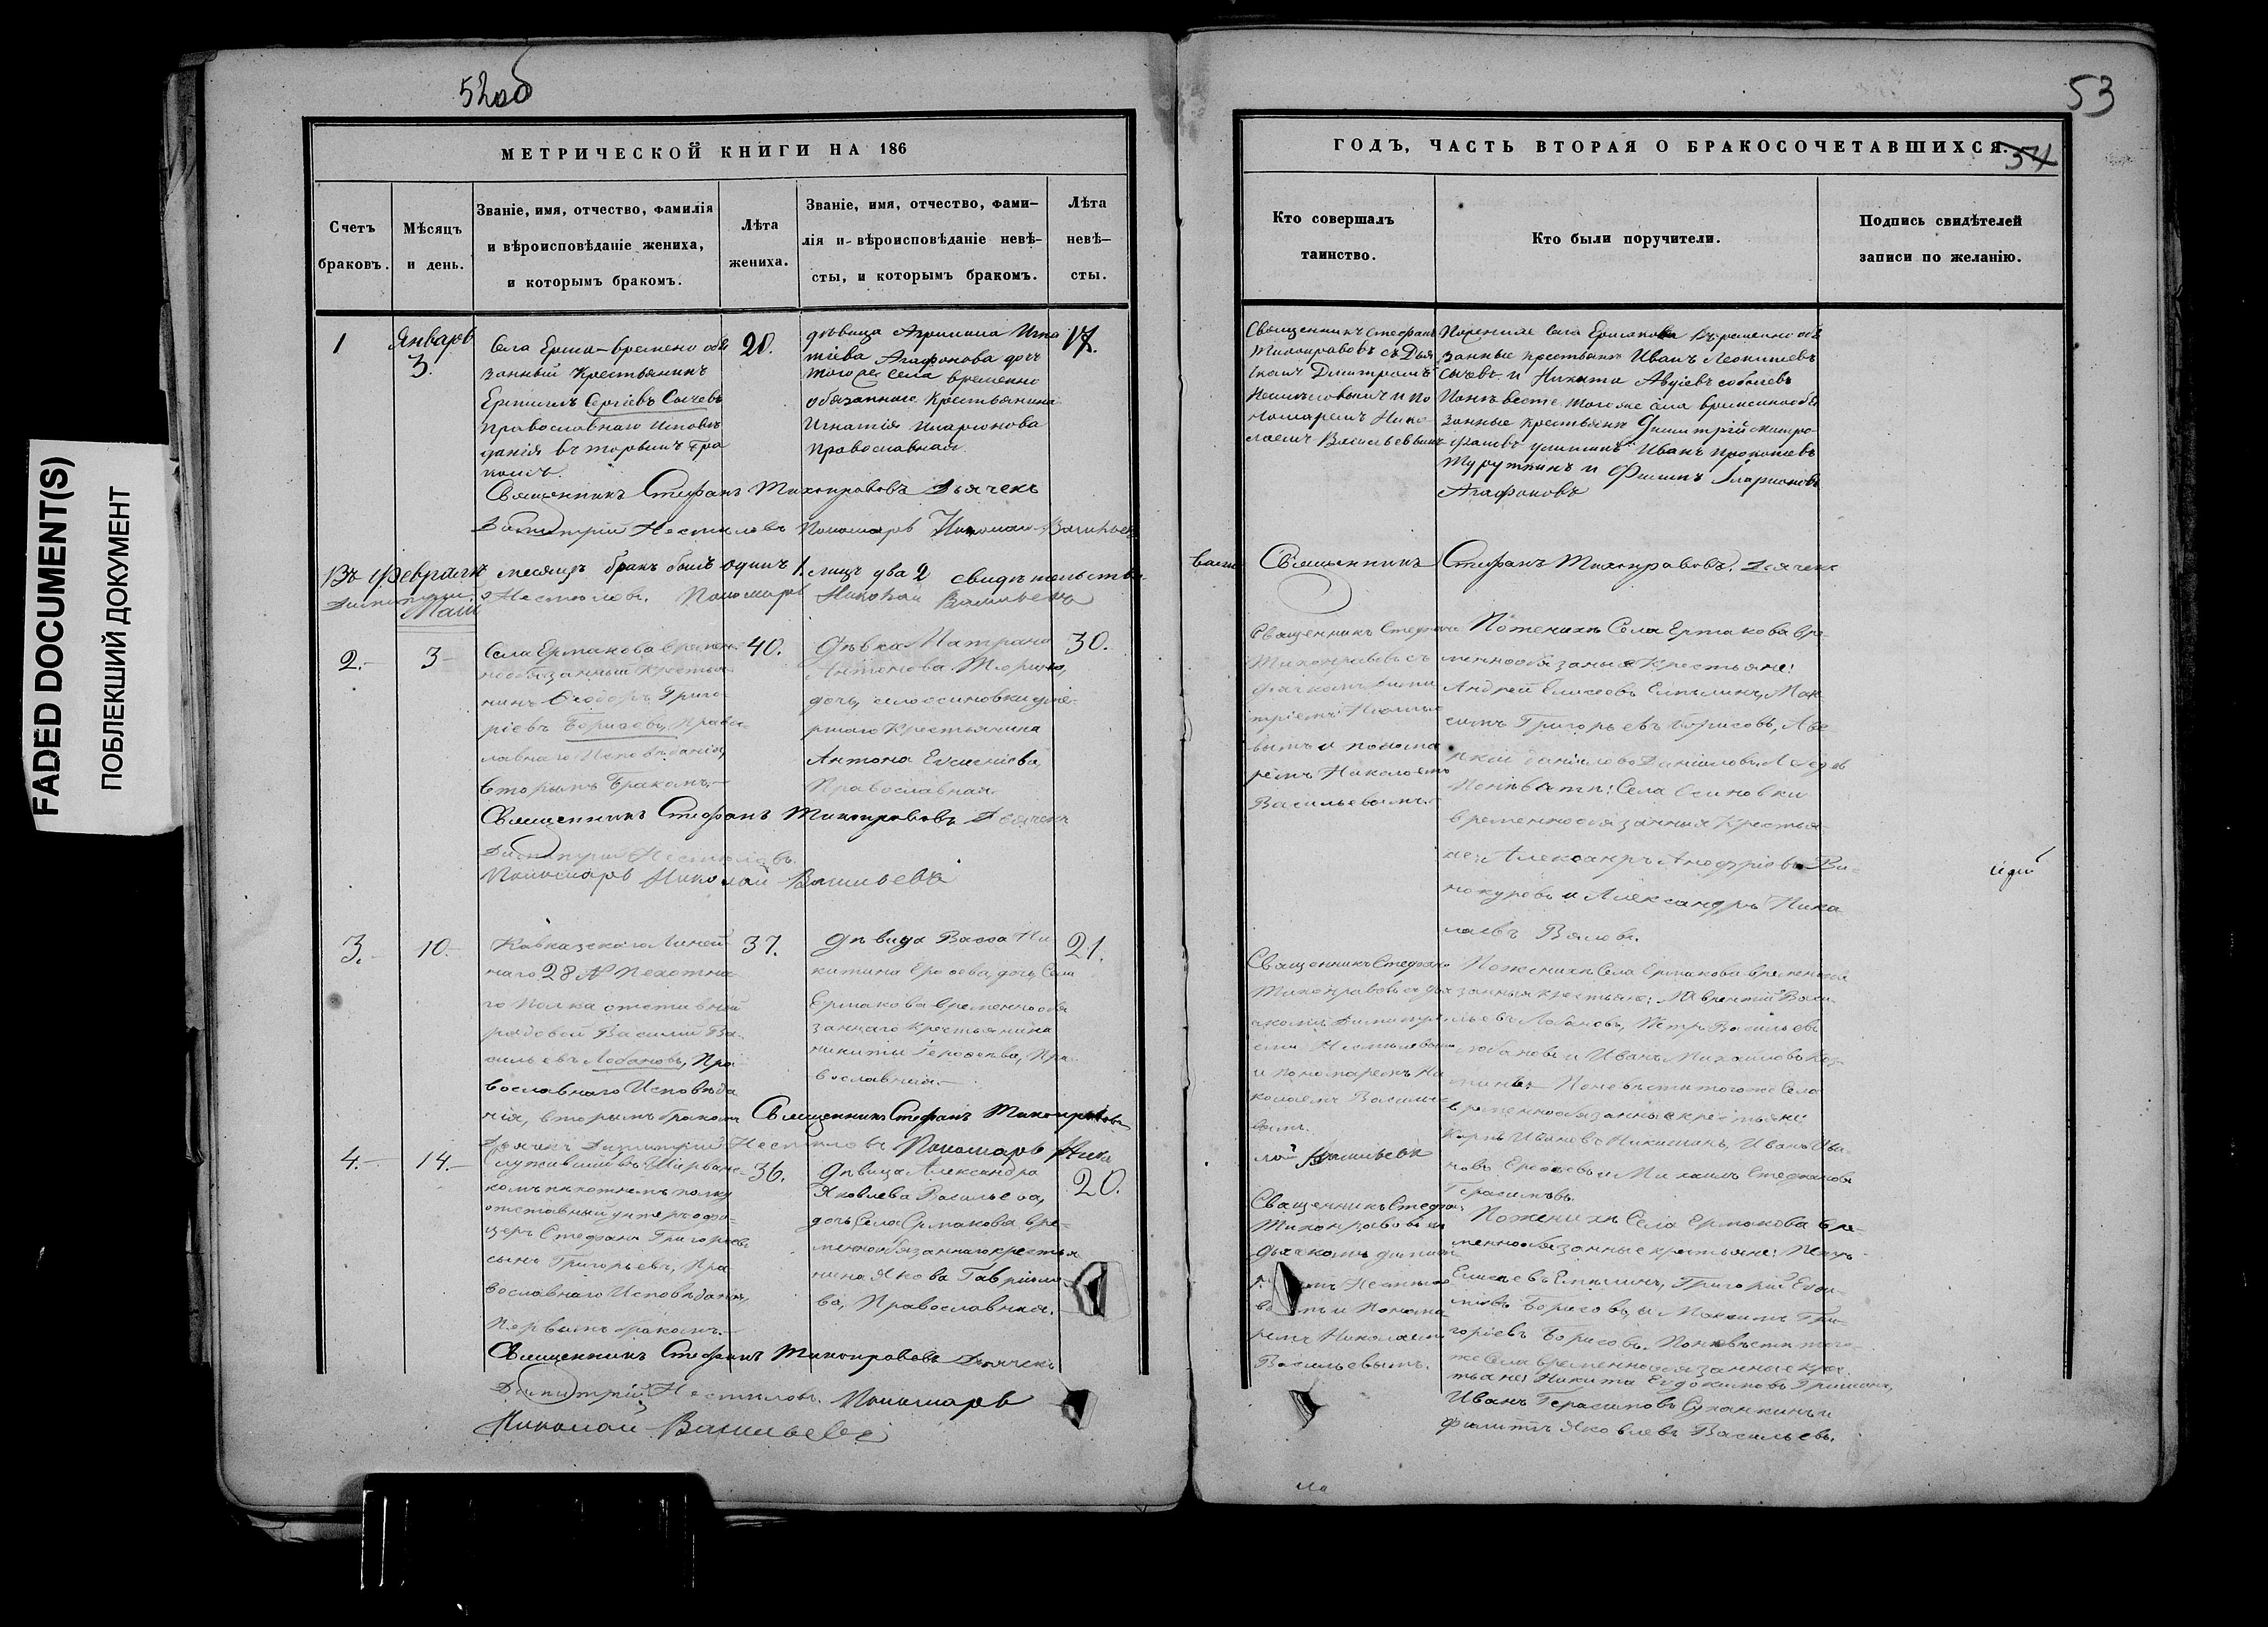 52об
МЕТРИЧЕСКОЙ КНИГИ НА 186
Счетъ браковъ.
Мѣсяцъ и день.
Званіе, имя, отчество, фамилія
и вѣроисповѣданіе жениха,
и которымъ бракомъ.
Лѣта жениха.
Званіе, имя, отчество, фами-
лія и вѣроисповѣданіе невѣ-
сты, и которымъ бракомъ.
Лѣта невѣ-
сты.
1
Январь
3.
Села Ерма- временно обя
занный Крестьянинъ
Сергіевъ Сычевъ
православнаго исповѣ
данія вторымъ бра
комъ.
20.
дѣвица Агрипина Игна
тіева Агафонова дочь
того же села временно
обязаннаго Крестьянина
Игнатія Иларионова
православная
17.
Священникъ Стефанъ Тихонравовъ Дьячекъ
Димитрій Несмѣловъ Пономарь Николай Василь
Въ февралѣ месяцъ бракъ былъ одинъ 1. лицъ два 2 свидѣтельство
Димитрій Несмѣловъ. Пономарь Николай Васильевъ
Маій
2.
3
Села Ермакова времен-
нообязанный Крестья-
нинъ Ѳеодоръ Григо-
ріевъ Борисовъ, Право-
славнаго Исповѣданія,
вторымъ Бракомъ.
40.
Дѣвка Матрона
Антонова
дочь, села осиновки
Крестьянина
Антона
Православная.
30.
Священникъ Стефанъ Тихонравовъ Дьячекъ
Димитрій Несмѣловъ.
Пономарь Николай Васильевъ
3.
10.
Кавказскаго Линей
наго 28 № Пехотна
го полка отставной
рядовой Василій Ва
сильевъ Лобановъ, Пра
вославнаго Исповѣда
нія, вторымъ бракомъ
37.
Дѣвица Васса Ни
китина дочь Села
Ермакова временнообя
заннаго Крестьянина
никиты Пра-
вославная.
21.
Священникъ Стефанъ Тихонравовъ
Дьячекъ Димитрій Несмѣловъ Пономарь Нико
4.
14.
Служившій въ Ширванс-
комъ пѣхотномъ полку
отставный унтеръ офи-
церъ Стефанъ Григорьевъ
сынъ Григорьевъ, Пра
вославнаго Исповѣданія,
Первымъ бракомъ.
36.
Дѣвица Александра
Яковлева Васильева,
дочь Села Ермакова вре-
меннообязаннаго крестья
нина Якова Гаврило-
ва, Православная.
20.
Священникъ Стефанъ Тихонравовъ Дьячекъ
Димитрій Несмѣловъ. Пономарь
Николай Васильевъ
53
54
ГОДЪ, ЧАСТЬ ВТОРАЯ О БРАКОСОЧЕТАВШИХСЯ.
Кто совершалъ таинство.
Кто были поручители.
Подпись свидѣтелей записи по желанію.
Священникъ Стефанъ
Тихонравовъ съ Дья
комъ Димитріемъ
и по
номаремъ Нико
лаемъ Васильевымъ
По женихе Села Ермакова Временнообя
занные крестьяне Иванъ
Сычевъ и Никита
По невѣсте того же села временнообя
занные крестьяне Димитрій
Иванъ Прокопіевъ
и Филипъ Ларионовъ
Агафоновъ
Священникъ Стефанъ Тихонравовъ. Дьячекъ
Священникъ Стефанъ
Тихонравовъ съ
дьячкомъ Дими
тріемъ Несмѣло
вымъ и понома
ремъ Николаемъ
Васильевымъ.
По женихѣ Села Ермакова вре
меннообязаныя Крестьяне:
Андрей Елисеевъ Мак
симъ Григорьевъ Борисовъ,
Даниловъ
По невѣсти: Села Осиновки
временнообязанныя Крестья
не: Александръ Ви-
нокуровъ и Александръ Нико
лаевъ
Священникъ Стефанъ
Тихонравовъ съ дья
чкомъ Димитрі
емъ Несмѣловымъ
и пономаремъ Ни
колаемъ Василье
вымъ.
По женихѣ Села Ермакова временнообя
занныя крестьяне: Лаврентій Васи
льевъ Лобановъ, Петръ Васильевъ
Лобановъ и Иванъ Михаиловъ
По невѣсти того же Села
временнообязанные крестьяне
Карпъ Ивановъ Иванъ Ива
новъ и Михаилъ Стефановъ
Герасимовъ.
лай Васильевъ
Священникъ Стефанъ
Тихонравовъ съ
дьячкомъ Димит
Несмѣло
и Понома
ремъ Николаемъ
Васильевымъ.
По женихѣ Села Ермакова вре-
меннообязанные крестьяне: Петръ
Елисеевъ Григорій
Борисовъ, и Максимъ Гри-
горіевъ Борисовъ. По невѣсти того-
же Села временнообязанные крес
тьяне: Никита Евдокимовъ
Иванъ Герасимовъ и
Филиппъ Яковлевъ Васильевъ.
FADED DOCUMENT(S)
ПОБЛЕКШИЙ ДОКУМЕНТ